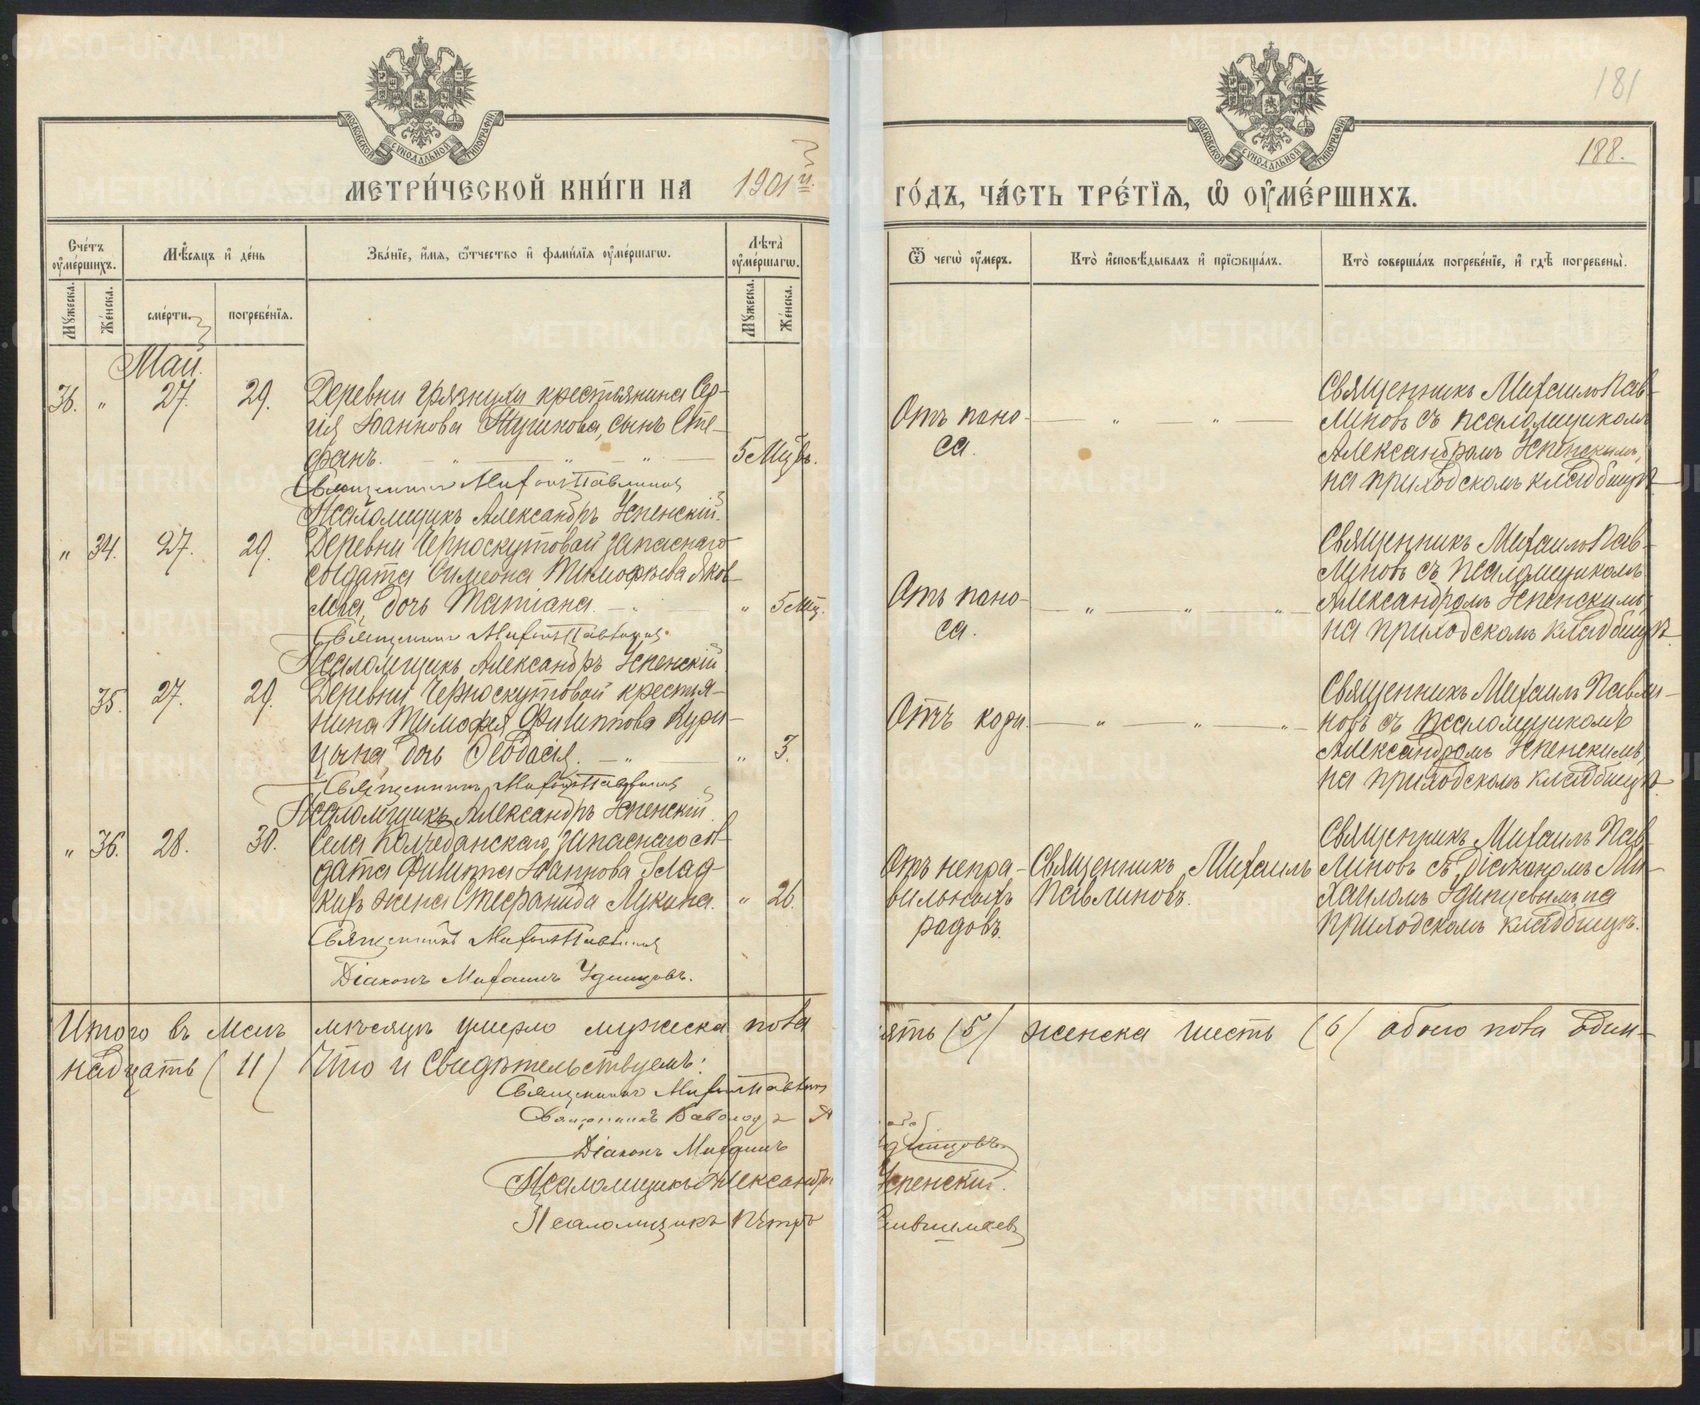 181
188.
МОСКОВСКОЙ СѴНОДАЛЬНОЙ ТИПОГРАФІИ
МОСКОВСКОЙ СѴНОДАЛЬНОЙ ТИПОГРАФІИ
МЕТРИ́ЧЕСКОЙ КНИ́ГИ НА 1901й. ГО́ДЪ, ЧА́СТЬ ТРЕ́ТІЯ, Ѡ ОУМЕ́РШИХЪ.
Сче́тъ оуме́ршихъ.
Мѣ́сяцъ и де́нь
Зва́ніе, и́мя, ѻ́тчество и фами́лія оуме́ршагѡ.
Лѣта̀ оуме́ршагѡ.
Ѿ чегѡ̀ оу́меръ.
Кто̀ и҆сповѣ́дывалъ и҆ прїѡбща́лъ.
Кто̀ соверша́лъ погребе́нїе, и҆ гдѣ̀ погребены̀.
Му́жеска.
Же́нска.
сме́рти.
погребе́нїя.
Му́жеска.
Же́нска.
Май.
36. " 27. 29. Деревни Грязнухи крестьянина Сер-
гія Іоаннова сынъ Сте-
фанъ. " " " 5 Мцъ.
Священникъ Михаилъ Павлиновъ
Псаломщикъ Александръ Успенскій.
Отъ поно-
са.
Священникъ Михаилъ Пав-
линовъ съ псаломщикомъ
Александромъ Успенскимъ,
на приходскомъ кладбищѣ.
" 34. 27. 29. Деревни Черноскутовой запаснаго
солдата Симеона Тимофѣева Яков-
лева, дочь Татіана. " 5 Мц.
Священникъ Михаилъ Павлиновъ.
Псаломщикъ Александръ Успенскій
Отъ поно-
са.
Священникъ Михаилъ Пав-
линовъ съ псаломщикомъ
Александромъ Успенскимъ,
на приходскомъ кладбищѣ.
35. 27. 29. Деревни Черноскутовой крестья-
нина Тимофея Филиппова Кури-
цына, дочь Ѳеодосія. " " 3.
Священникъ Михаилъ Павлиновъ
Псаломщикъ Александръ Успенскій.
Отъ кори.
Священникъ Михаилъ Павли-
новъ съ псаломщикомъ
Александромъ Успенскимъ,
на приходскомъ кладбищѣ.
" 36. 28. 30. Села Колчеданскаго, запаснаго сол-
дата Филиппа Іоаннова Глад-
кихъ жена Стефанида Лукина. " 26.
Священникъ Михаилъ Павлиновъ
Діаконъ Михаилъ Удинцовъ.
Отъ непра-
вильныхъ
родовъ.
Священникъ Михаилъ
Павлиновъ.
Священникъ Михаилъ Пав-
линовъ съ діакономъ Ми-
хаиломъ Удинцевымъ на
приходскомъ кладбищѣ.
Итого въ Маѣ мѣсяцѣ умерло мужеска пола пять (5) женска шесть (6) обоего пола один-
надцать (11) Что и Свидѣтельствуемъ:
Священникъ Михаилъ Павлиновъ
Священникъ Всеволодъ
Діаконъ Михаилъ Удинцовъ
Псаломщикъ Александръ Успенскій.
Псаломщикъ Петръ
METRIKI.GASO-URAL.RU